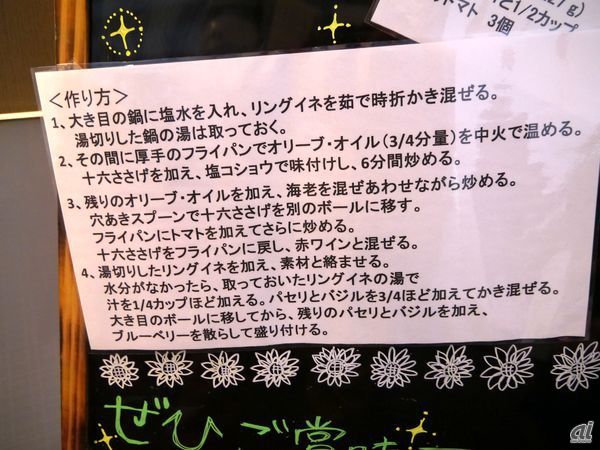 と1/2カップ
トマト 3個
＜作り方＞
1、大き目の鍋に塩水を入れ、リングイネを茹で時折かき混ぜる。
湯切りした鍋の湯は取っておく。
2、その間に厚手のフライパンでオリーブ・オイル（3/4分量）を中火で温める。
十六ささげを加え、塩コショウで味付けし、6分間炒める。
3、残りのオリーブ・オイルを加え、海老を混ぜあわせながら炒める。
穴あきスプーンで十六ささげを別のボールに移す。
フライパンにトマトを加えてさらに炒める。
十六ささげをフライパンに戻し、赤ワインと混ぜる。
4、湯切りしたリングイネを加え、素材と絡ませる。
水分がなかったら、取っておいたリングイネの湯で
汁を1/4カップほど加える。パセリとバジルを3/4ほど加えてかき混ぜる。
大き目のボールに移してから、残りのパセリとバジルを加え、
ブルーベリーを散らして盛り付ける。
ぜひご賞味
ai